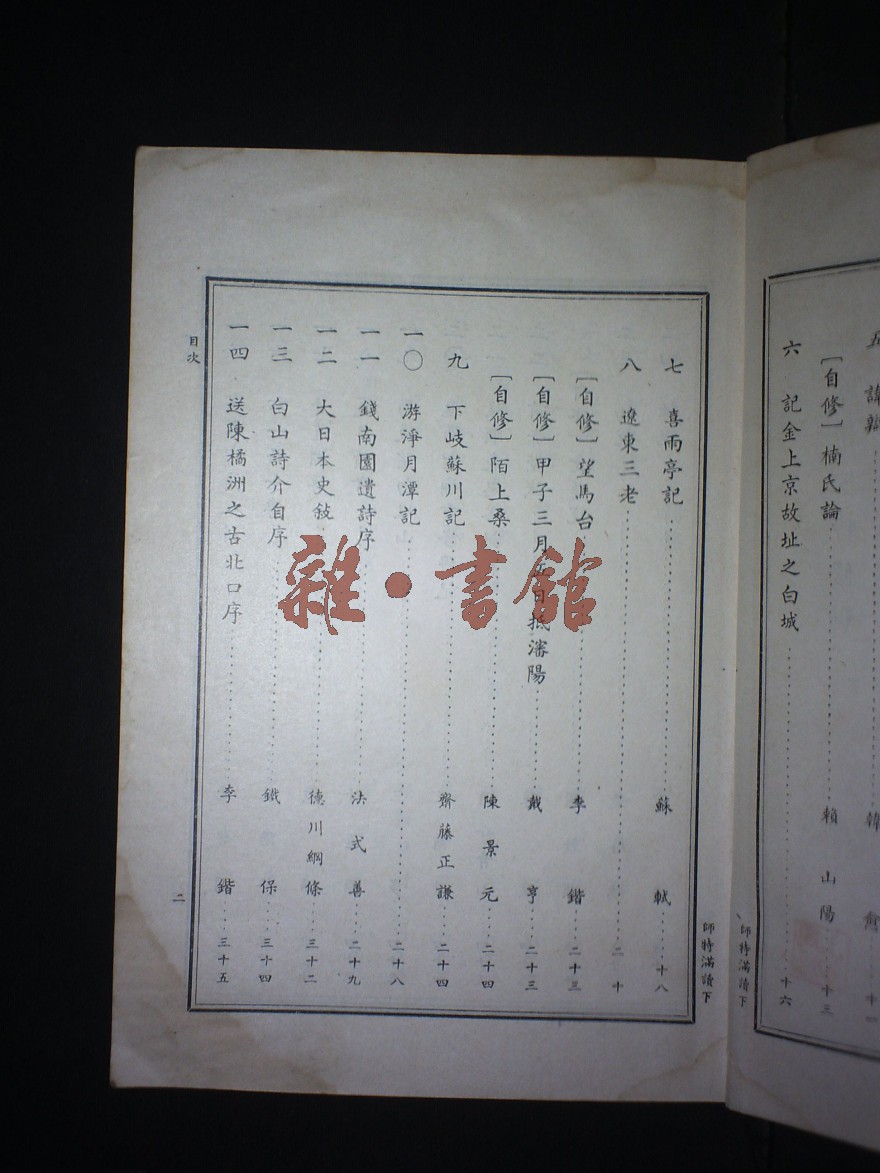 五 諱辯 韓愈 十一
［自修］楠氏論 賴山陽 十三
六 記金上京故址之白城 十六
師特滿讀下
師特滿讀下
七 喜雨亭記 蘇軾 十八
八 遼東三老 二十
［自修］望馬台 李鍇 二十三
［自修］甲子三月 日抵瀋陽 戴亨 二十三
［自修］陌上桑 陳景元 二十四
九 下岐蘇川記 齋藤正謙 二十四
一〇 游淨月潭記 二十八
一一 錢南園遺詩序 法式善 二十九
一二 大日本史敍 德川綱條 三十二
一三 白山詩介自序 鐵保 三十四
一四 送陳橘洲之古北口序 李鍇 三十五
目次
二
雜·書館